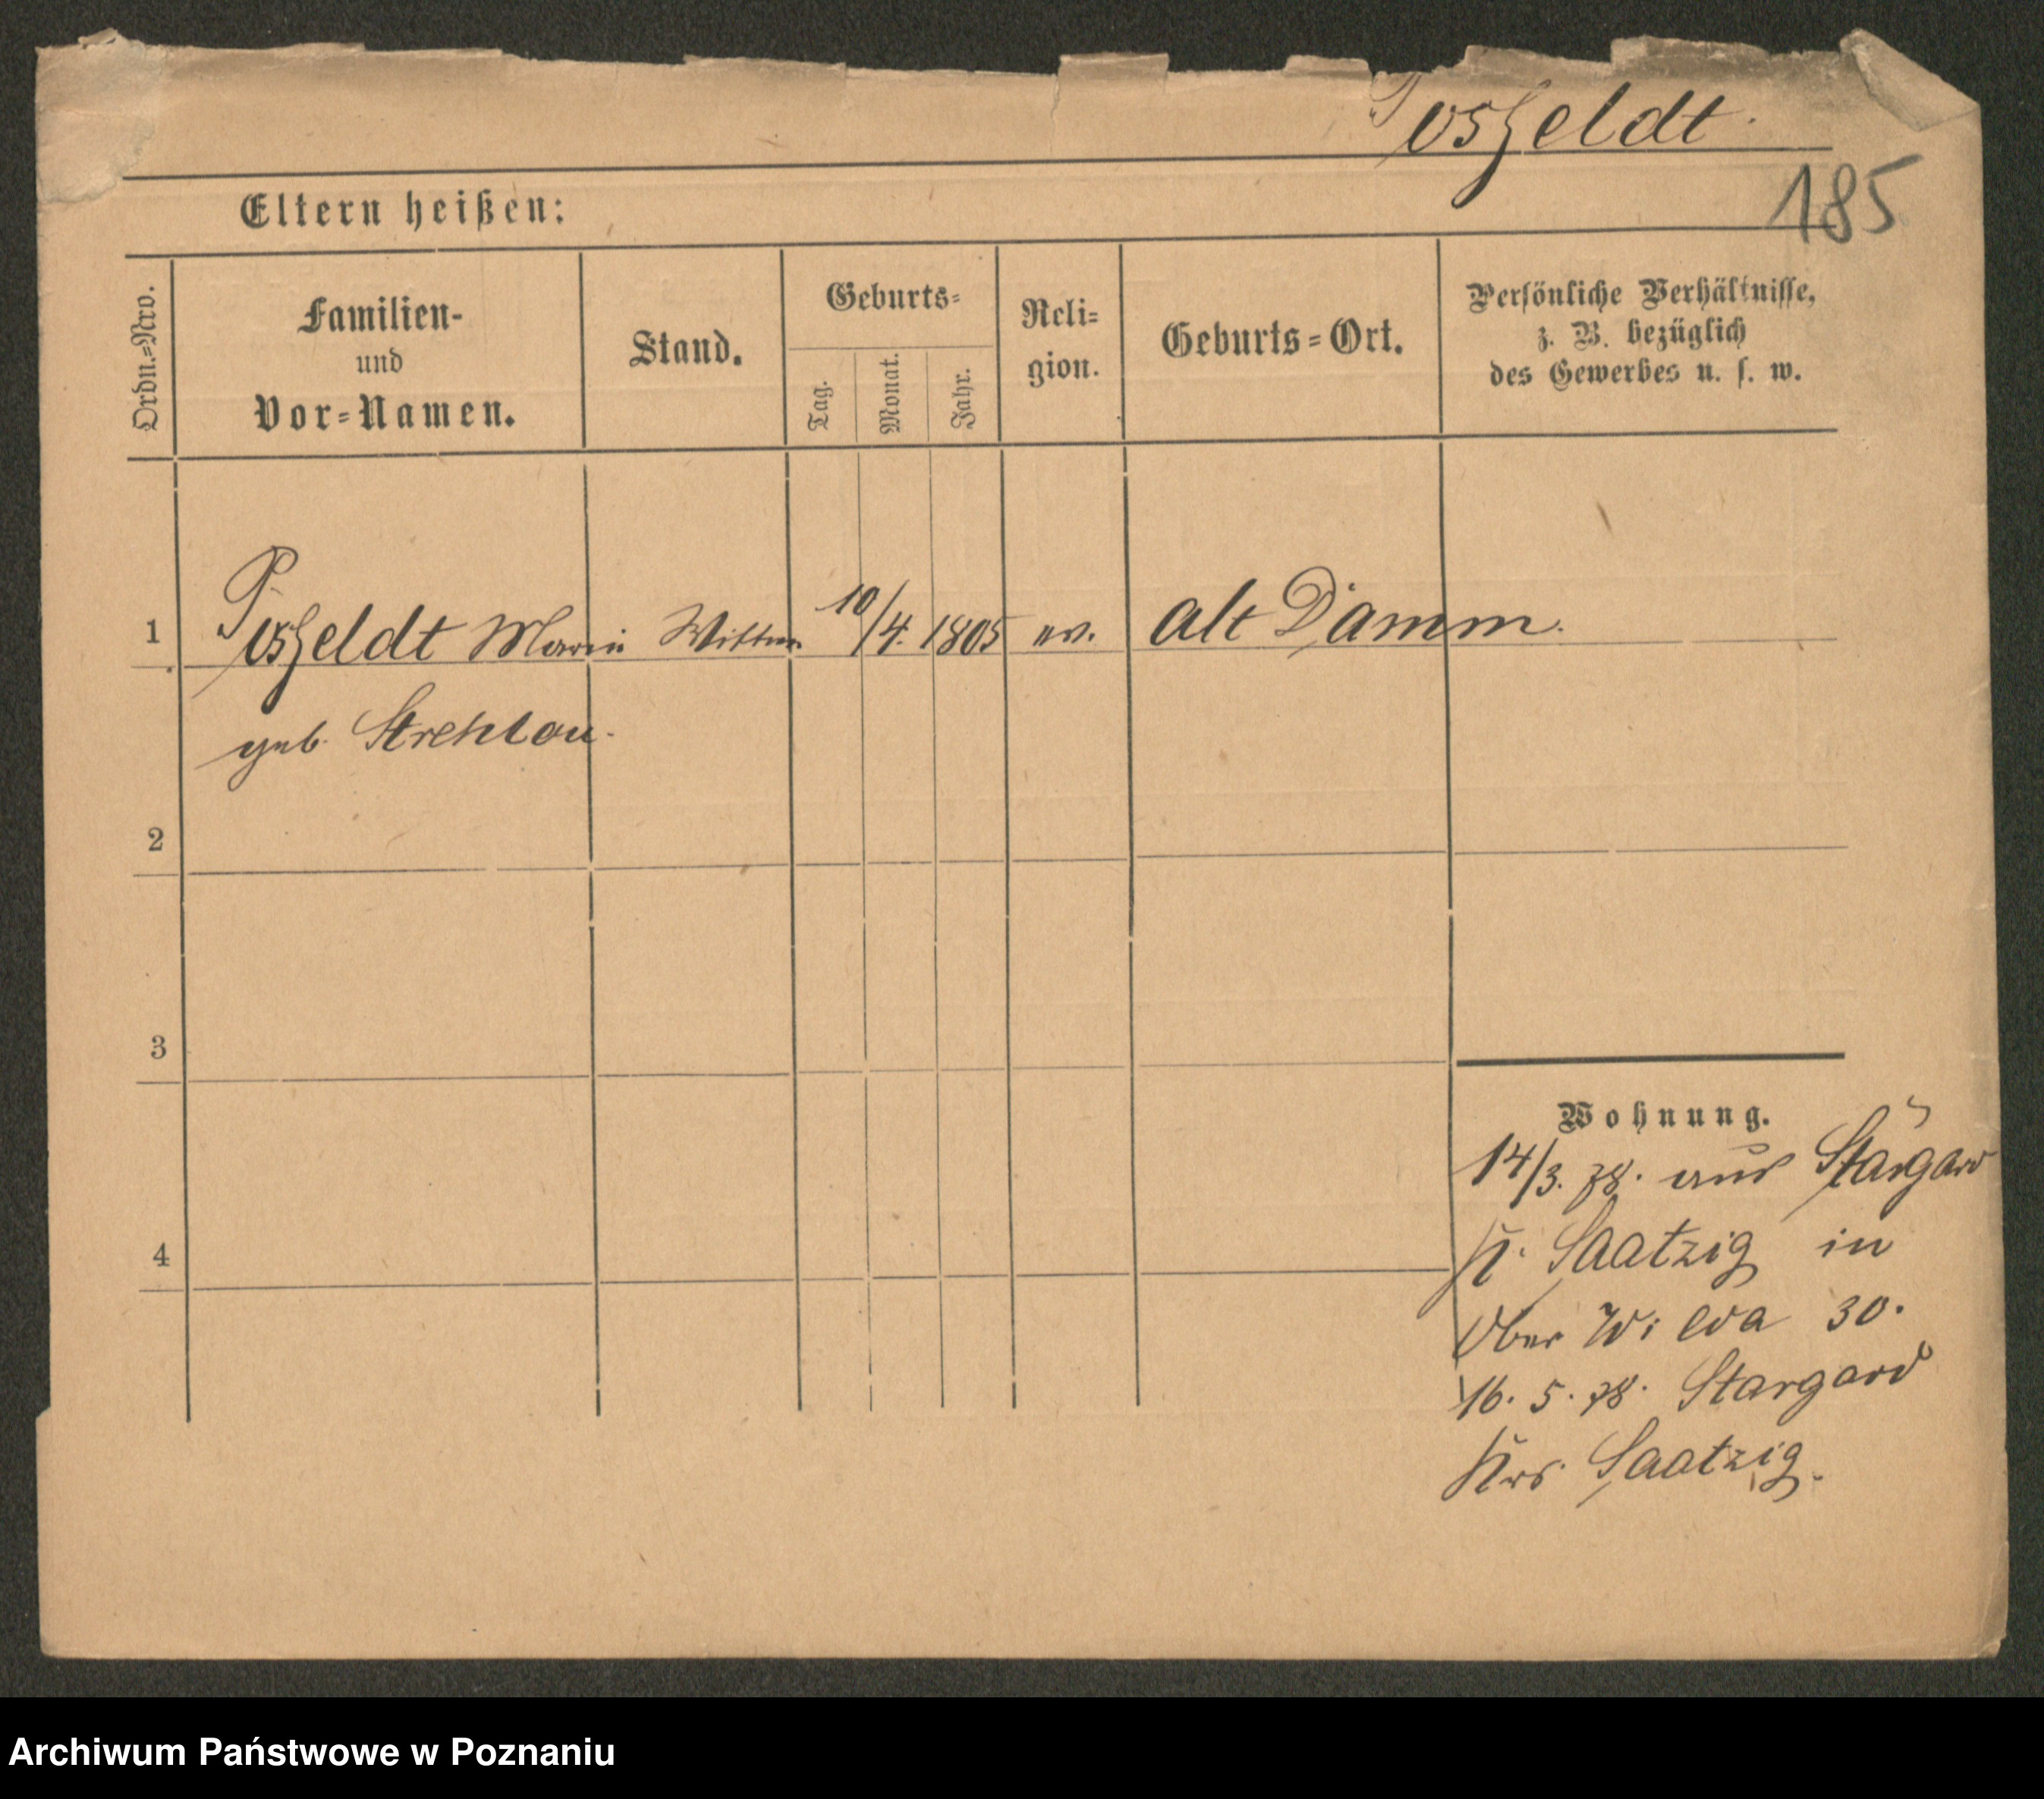 Posfeldt.
185
Eltern heißen:
Ordn.=Nro.
Familien-
und
Vor=Namen.
Stand.
Geburts=
Tag.
Monat.
Jahr.
Reli=
gion.
Geburts=Ort.
Persönliche Verhältnisse,
z. B. bezüglich
des Gewerbes u. s. w.
1 Posfeldt Marie Wittwe 10/4. 1805 ev. Alt Damm.
geb. Strehlau.
2
3
4
Wohnung.
14/3. 78. aus Stargard
K. Saatzig in
Ober Wilda 30.
16. 5. 78. Stargard
Krs. Saatzig.
Archiwum Państwowe w Poznaniu